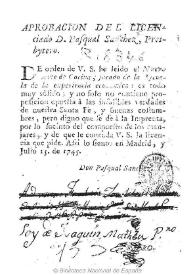 APROBACION DEL LICEN-
ciado D. Pasqual Sanchez, Pres-
bytero.
DE orden de V. S. he leido el Nuevo
Arte de Cocina, sacado de la Escue-
la de la experiencia economica: es todo
muy sólido; y no solo no contiene pro-
posicion opuesta à las infalibles verdades
de nuestra Santa Fè, y buenas costum-
bres, pero digno que se dè à la Imprenta,
por lo sucinto del compuesto de los man-
jares, y de que le conceda V. S. la licencia
que pide. Assi lo siento en Madrid, y
Julio 15. de 1745.
Don Pasqual Sanchez
Soy de Joaquin
Biblioteca Nacional de España